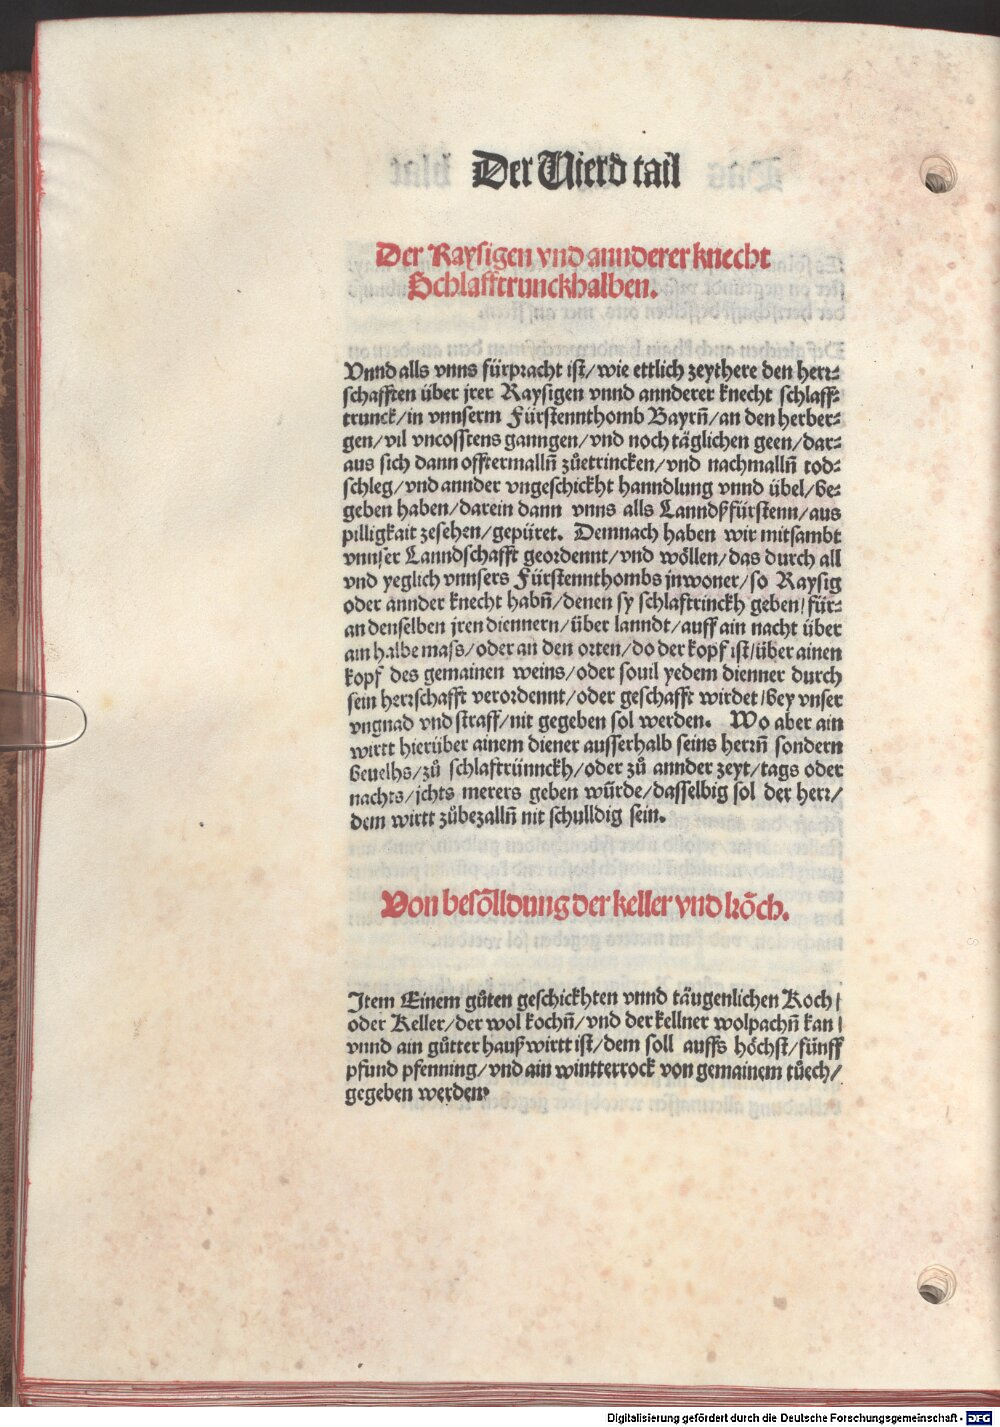 Der Vierd tail
Der Raysigen vnd annderer knecht
Schlafftrunckhalben.
Vnnd alls vnns fürpracht ist/wie ettlich zeythere den herr⸗
schafften über jrer Raysigen vnnd annderer knecht schlaff⸗
trunck/in vnnserm Fürstennthomb Bayrn̄/an den herber⸗
gen/vil vncosstens ganngen/vnd noch täglichen geen/dar⸗
aus sich dann offtermalln̄ zůetrincken/vnd nachmalln̄ tod⸗
schleg/vnd annder vngeschickht hanndlung vnnd übel/be⸗
geben haben/darein dann vnns alls Lanndßfürstenn/aus
pilligkait zesehen/gepüret. Demnach haben wir mitsambt
vnnser Lanndschafft geordennt/vnd wöllen/das durch all
vnd yeglich vnnsers Fürstennthombs jnwoner/so Raysig
oder annder knecht habn̄/denen sy schlaftrinckh geben/für⸗
an denselben jren diennern/über lanndt/auff ain nacht über
ain halbe mass/oder an den orten/do der kopf ist/über ainen
kopf des gemainen weins/oder souil yedem dienner durch
sein herrschafft verordennt/oder geschafft wirdet/bey vnser
vngnad vnd straff/nit gegeben sol werden. Wo aber ain
wirtt hierüber ainem diener ausserhalb seins herrn̄ sondern
beuelhs/zů schlaftrünnckh/oder zů annder zeyt/tags oder
nachts/jchts merers geben würde/dasselbig sol der herr/
dem wirtt zůbezalln̄ nit schulldig sein.
Von besölldung der keller vnd köch.
Jtem Einem gůten geschickhten vnnd täugenlichen Koch/
oder Keller/der wol kochn̄/vnd der kellner wolpachn̄ kan/
vnnd ain gůtter haußwirtt ist/dem soll auffs höchst/fünff
pfund pfenning/vnd ain wintterrock von gemainem tůech/
gegeben werden.
Digitalisierung gefördert durch die Deutsche Forschungsgemeinschaft - DFG